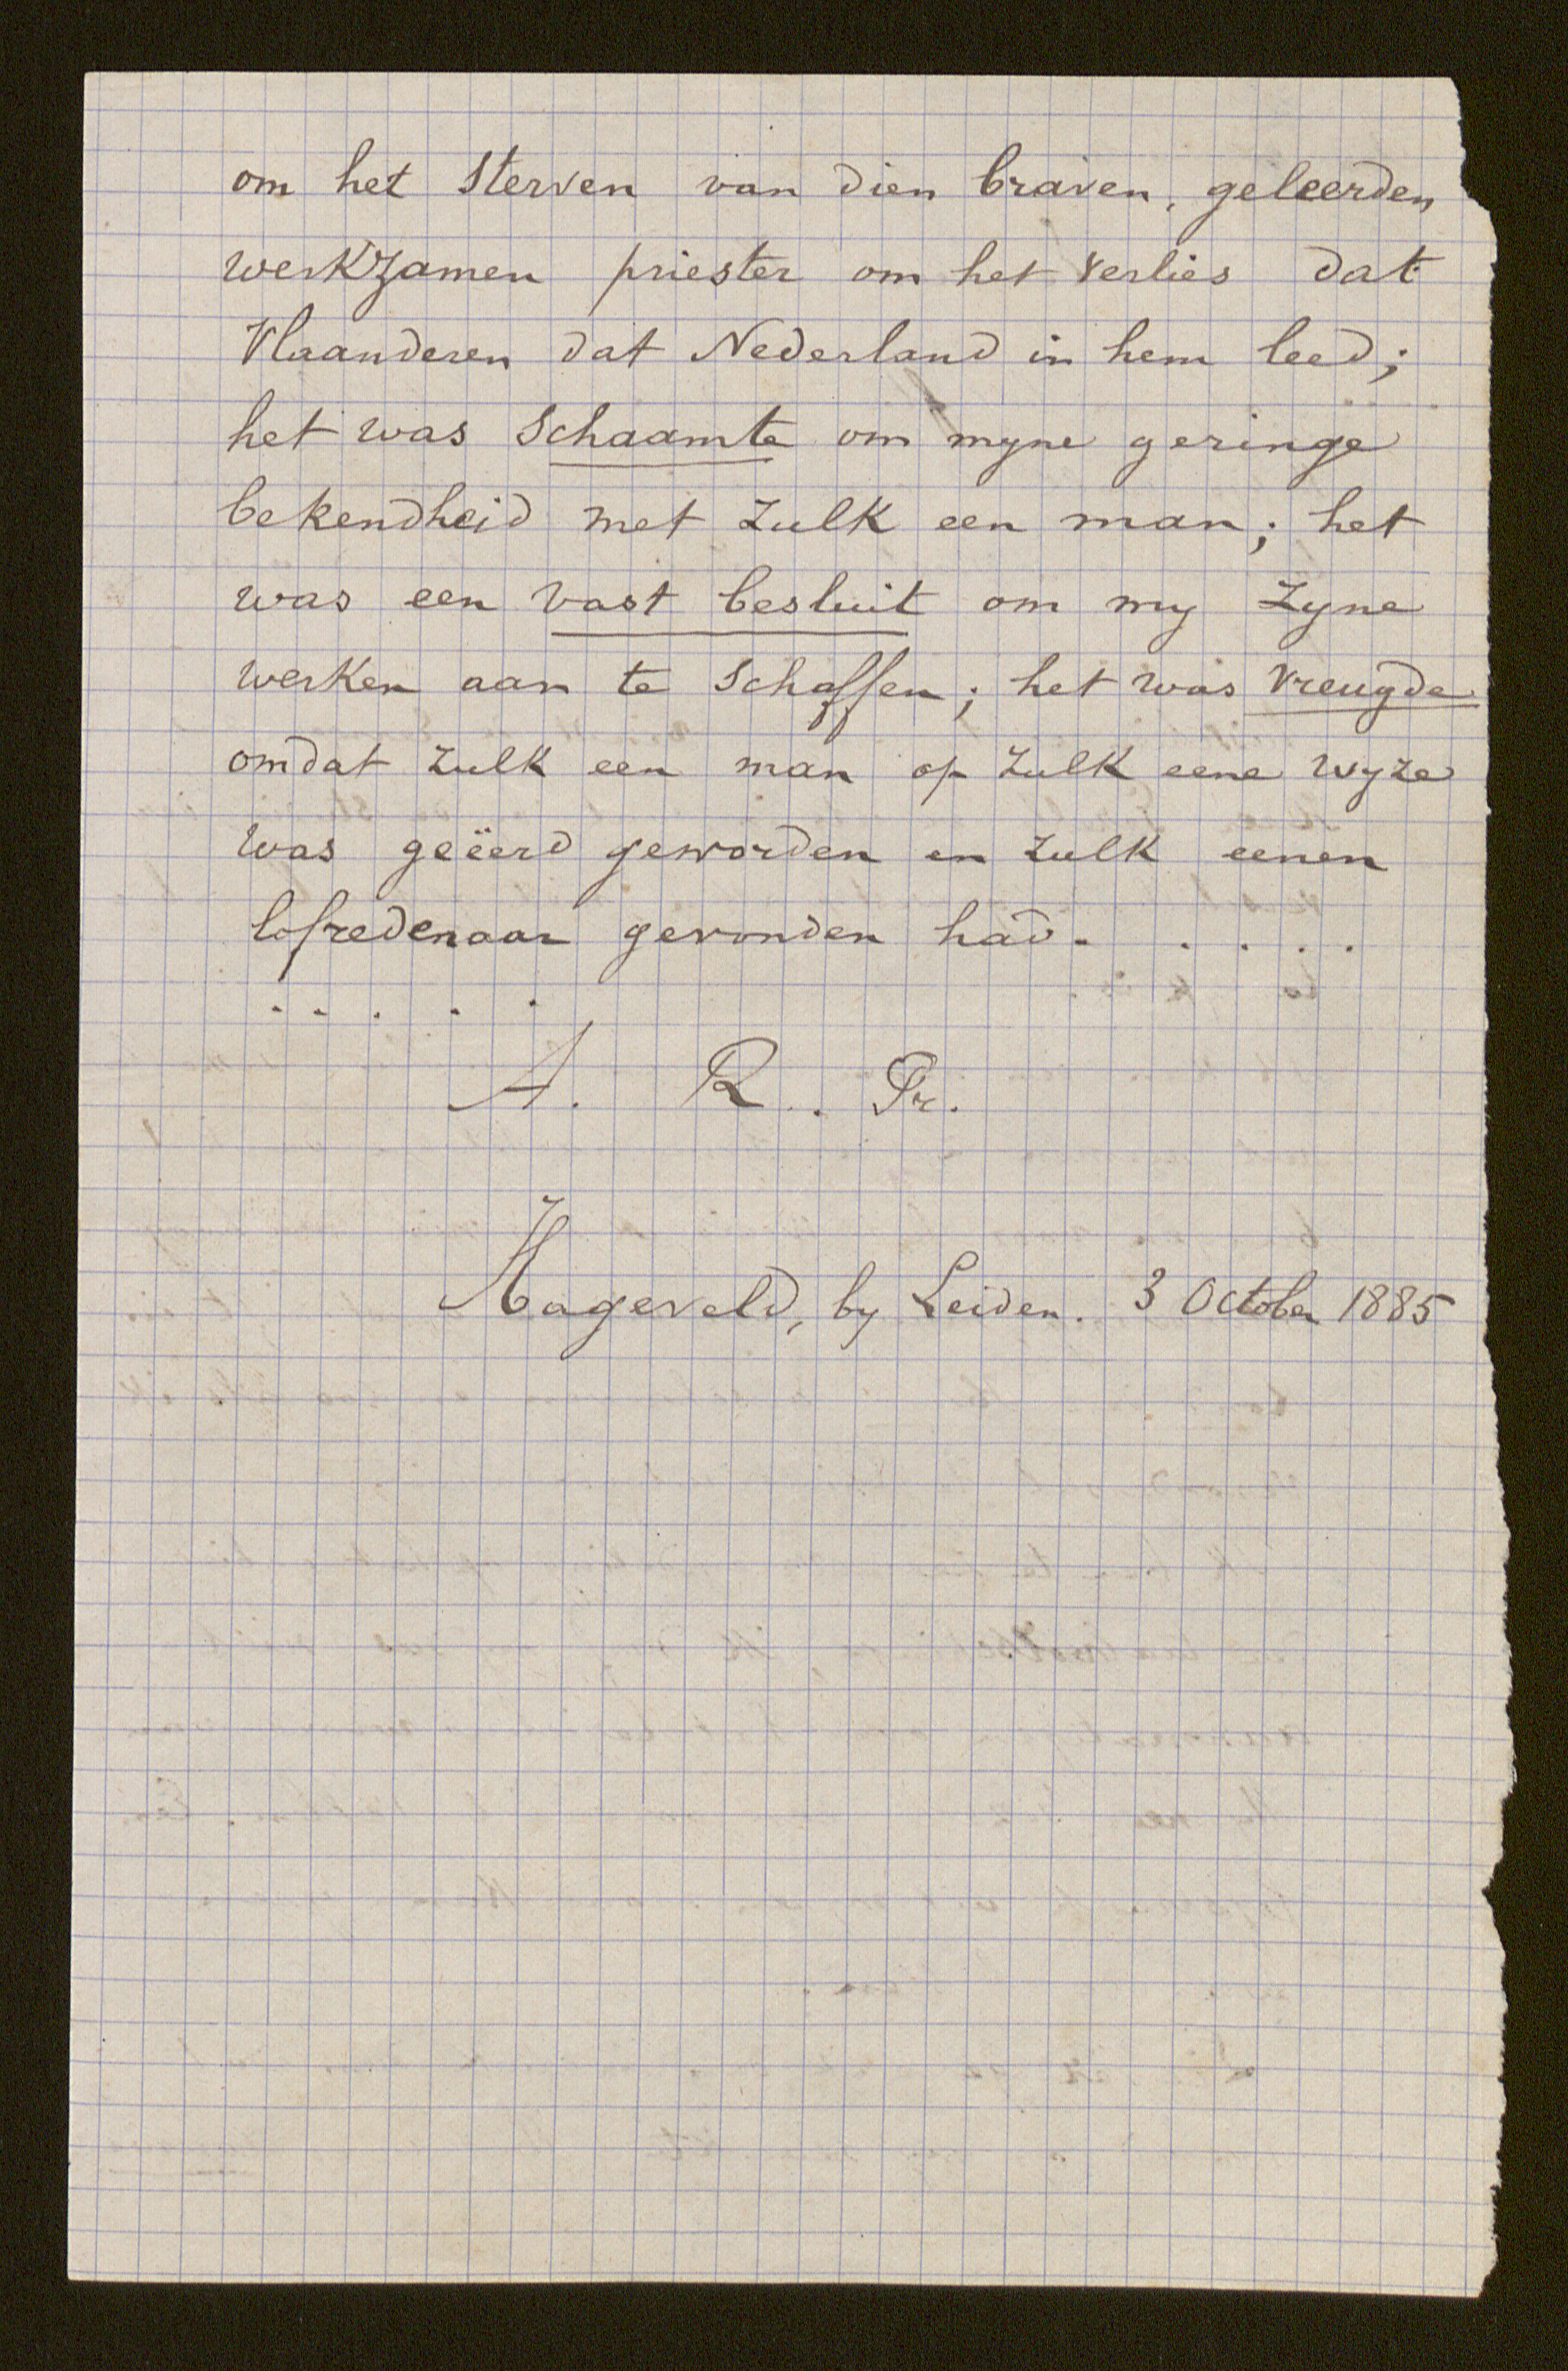 om het sterven van dien braven, geleerden
werkzamen priester om het verlies dat
Vlaanderen dat Nederland in hem leed;
het was schaamte om myne geringe
bekendheid met zulk een man; het
was een vast besluit om my zyne
werken aan te schaffen; het was vreugde
omdat zulk een man op zulk eene wyze
was geëerd geworden en zulk eenen
lofredenaar gevonden had. . . . .
. . . . .
A. R. Pr.
Hageveld, by Leiden. 3 October 1885